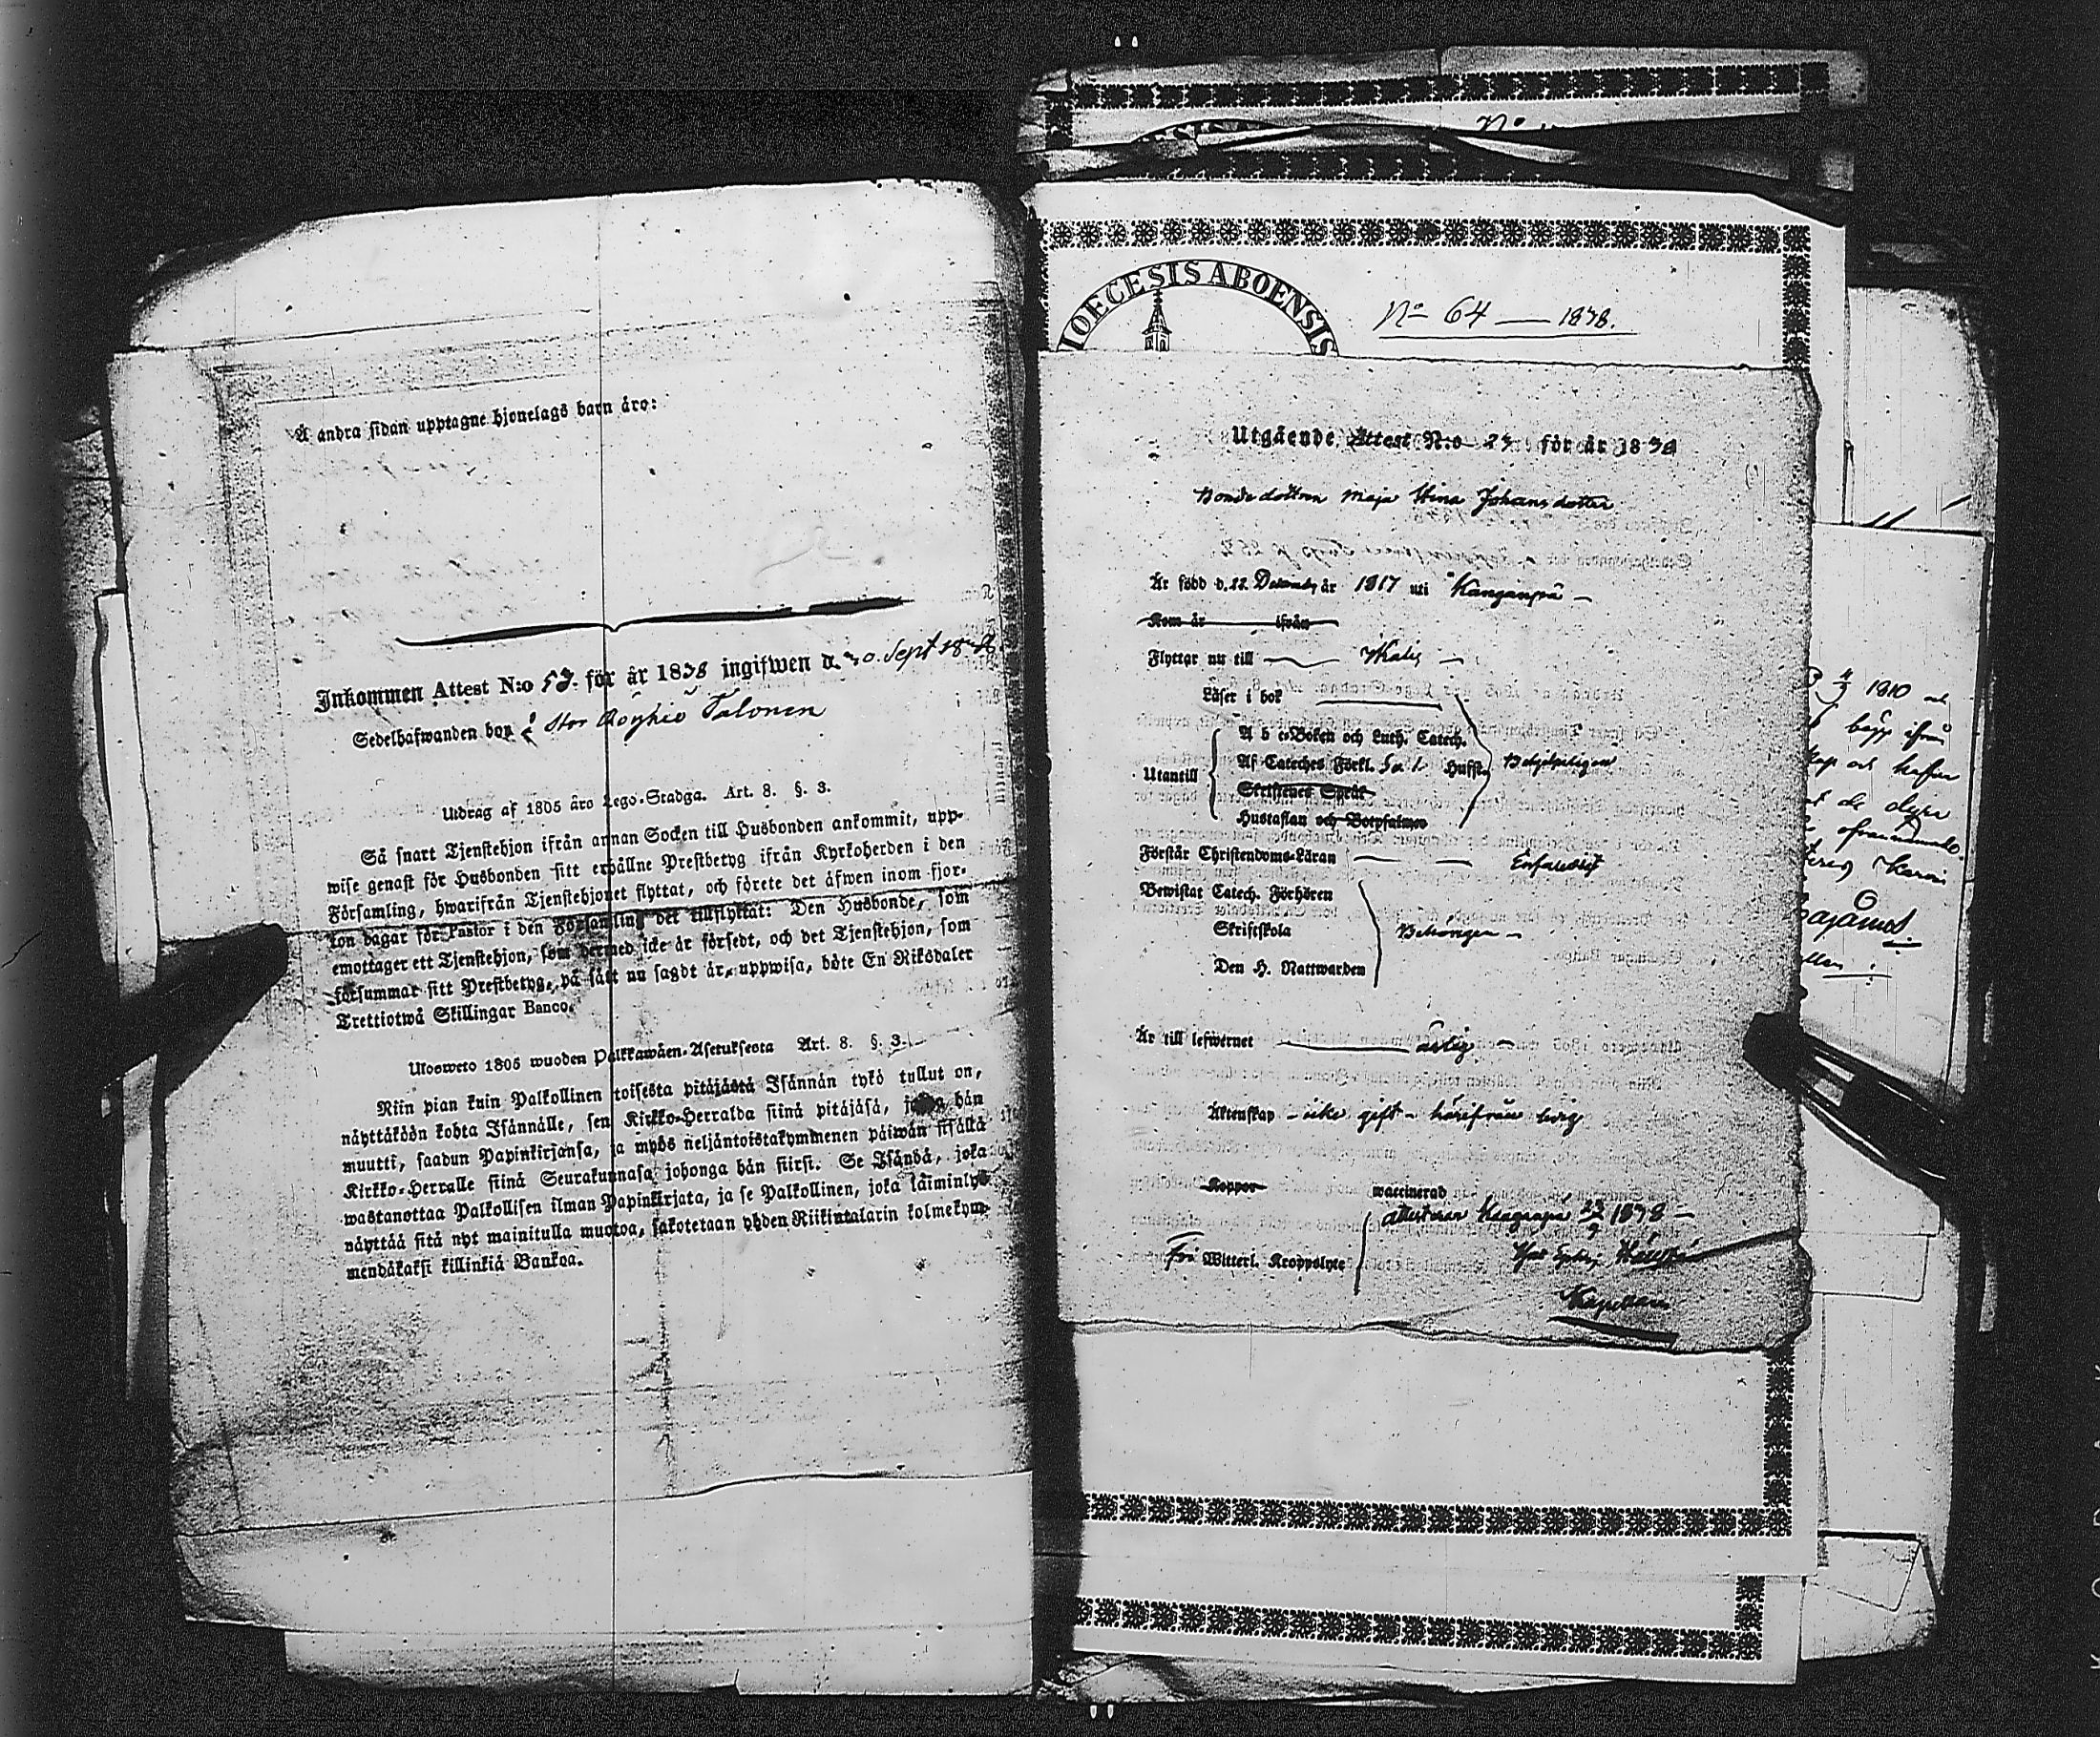 Å andra sidan upptagne hjonelags barn äro:
Inkommen Attest N:o 57. för år 1838 ingifwen d. 30. Sept 1838
Sedelhafwanden bor å Stor Röyhiö Talonen
Utdrag af 1805 års Lego-Stadga. Art. 8. §. 3.
Så snart Tjenstehjon ifrån annan Socken till Husbonden ankommit, upp-
wise genast för Husbonden sitt erhållne Prestbetyg ifrån Kyrkoherden i den
Församling, hwarifrån Tjenstehjonet flyttat, och förete det äfwen inom fjor-
ton dagar för Pastor i den Församling det tillflyttat: Den Husbonde, som
emottager ett Tjenstehjon, som dermed icke är försedt, och det Tjenstehjon, som
försummar sitt Prestbetyg, på sätt nu sagdt är, uppwisa, böte En Riksdaler
Trettiotwå Skillingar Banco.
Ulosweto 1805 wuoden Palkkawäen-Asetuksesta Art. 8. §. 3.
Niin pian kuin Palkollinen toisesta pitäjästä Isännän tykö tullut on,
näyttäköön kohta Isännälle, sen Kirkko-Herralda siinä pitäjäsä, josta hän
muutti, saadun Papinkirjansa, ja myös neljäntoistakymmenen päiwän sisällä
Kirkko-Herralle siinä Seurakunnasa johonga hän siirsi. Se Isändä, joka
wastanottaa Palkollisen ilman Papinkirjata, ja se Palkollinen, joka laiminlyö
näyttää sitä nyt mainitulla muotoa, sakotetaan yhden Riikintalarin kolmekym-
mendäkaksi killinkiä Bankoa.
N:o
DIOECESIS ABOENSIS
No 64 — 1838.
Utgående Attest N:o 27 för år 1838
Bondedottren Maja Stina Johansdotter
Är född d. 22 December år 1817 uti Kanganpä
Kom år ifrån
Flyttar nu till
Läser i bok
Utantill
A b c-Boken och Luth. Catech.
Af Cateches Förkl. Hufst.
Skriftenes Språk
Hustaflan och Botpsalmer
Förstår Christendoms-Läran
Bewistat Catech. Förhören
Skriftskola
Den H. Nattwarden
Behörigen
Är till lefwernet ärlig
Äktenskap – icke gift – härifrån ledig
Koppor
waccinerad
Fri Witterl. Kroppslyte
attesterar 1838
Kapellan
1810 och